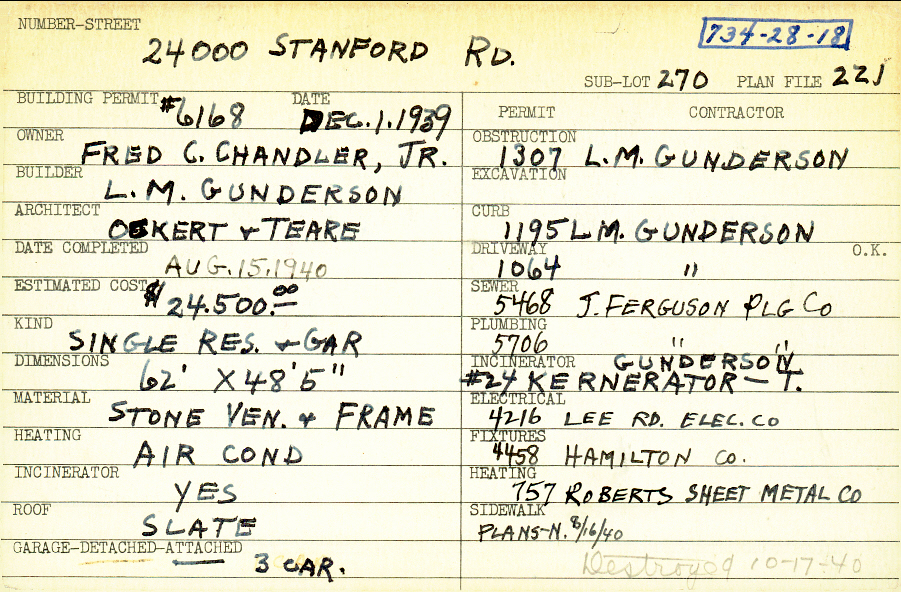 NUMBER-STREET
24000 STANFORD RD.
734-28-18
SUB-LOT 270 PLAN FILE 221
BUILDING PERMIT #6168 DATE DEC.1.1939
OWNER FRED C. CHANDLER, JR.
BUILDER L.M. GUNDERSON
ARCHITECT OCKERT & TEARE
DATE COMPLETED AUG.15.1940
ESTIMATED COST $24.500.00
KIND SINGLE RES. & GAR
DIMENSIONS 62' X 48'5"
MATERIAL STONE VEN. & FRAME
HEATING AIR COND
INCINERATOR YES
ROOF SLATE
GARAGE-DETACHED-ATTACHED 3 CAR.
PERMIT CONTRACTOR
OBSTRUCTION 1307 L.M. GUNDERSON
EXCAVATION
CURB 1195 L.M. GUNDERSON
DRIVEWAY 1064 " O.K.
SEWER 5468 J. FERGUSON PLG CO
PLUMBING 5706 " "
INCINERATOR GUNDERSON
#24 KERNERATOR - T.
ELECTRICAL 4216 LEE RD. ELEC. CO
FIXTURES 4458 HAMILTON CO.
HEATING 757 ROBERTS SHEET METAL CO
SIDEWALK
PLANS-N. 8/16/40
Destroyed 10-17-40